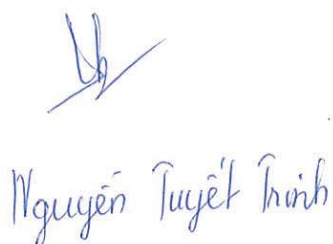 Nguyễn Tuyết Trinh